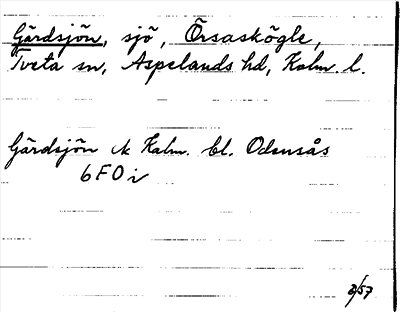 Gärdsjön, sjö, Örsaskögle,
Tveta sn, Aspelands hd, Kalm. l.
Gärdsjön ek Kalm. bl. Odensås
6F0i
3/57